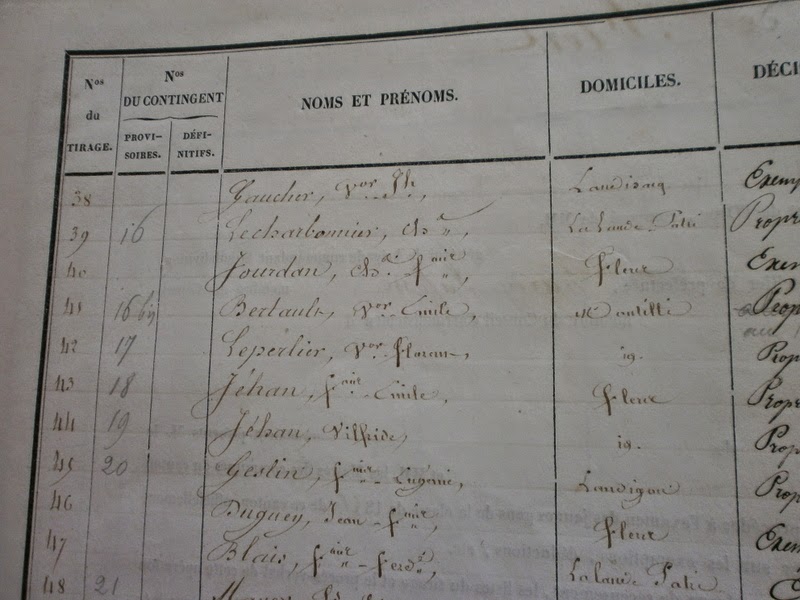 Nos du TIRAGE. Nos DU CONTINGENT PROVI-SOIRES. DÉFI-NITIFS. NOMS ET PRÉNOMS. DOMICILES. DÉCI
38 Gaucher, Vor Landisacq Exemp
39 16 Lecharbonnier, Ch La Lande Patri Propr
40 Jourdan, Ch. fois Flers Exem
41 16 bis Bertault, Vor Emile, Montilli Prop
42 17 Leperlier, Vor Florent, id. Prop
43 18 Jéhan, fois Emile, Flers Propr
44 19 Jéhan, Vilfride, id. Pro
45 20 Geslin, fois Eugène, Landigou Prop
46 Duguey, Jean - fois Flers Exem
47 Blais, fois - Ferdd La Lande Patri
48 21